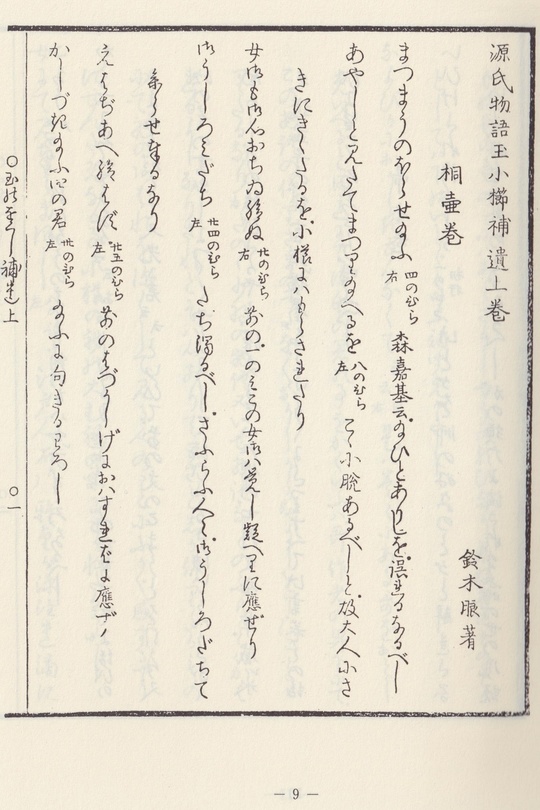 源氏物語玉小櫛補遺上巻
鈴木朖著
桐壷巻
まつまうのほらせのふ 四のひら右 森嘉基云のひとありしを誤れるなるべし
あやしと見たてまつりのへるを 八のひら左 こゝ小脱あるべしと故大人小さ
きにきゝたるを小櫛にハもらされたり
女御も御心おちゐ給ぬ 廿のひら右 前の一のみこの女御ハ覚し疑へりに應ぜり
御うしろみだち 廿四のひら左 たち濁るべしさふらふ人も御うしろだちて
参らせ奉るなり
えもぢあへ給はず 廿五のひら左 前のはづかしげにおハすれはよ應ず
かしづき給ふ四の君 廿のひら左 給ふに句きるわろし
○玉のをくし補遺上 ○一
― 9 ―